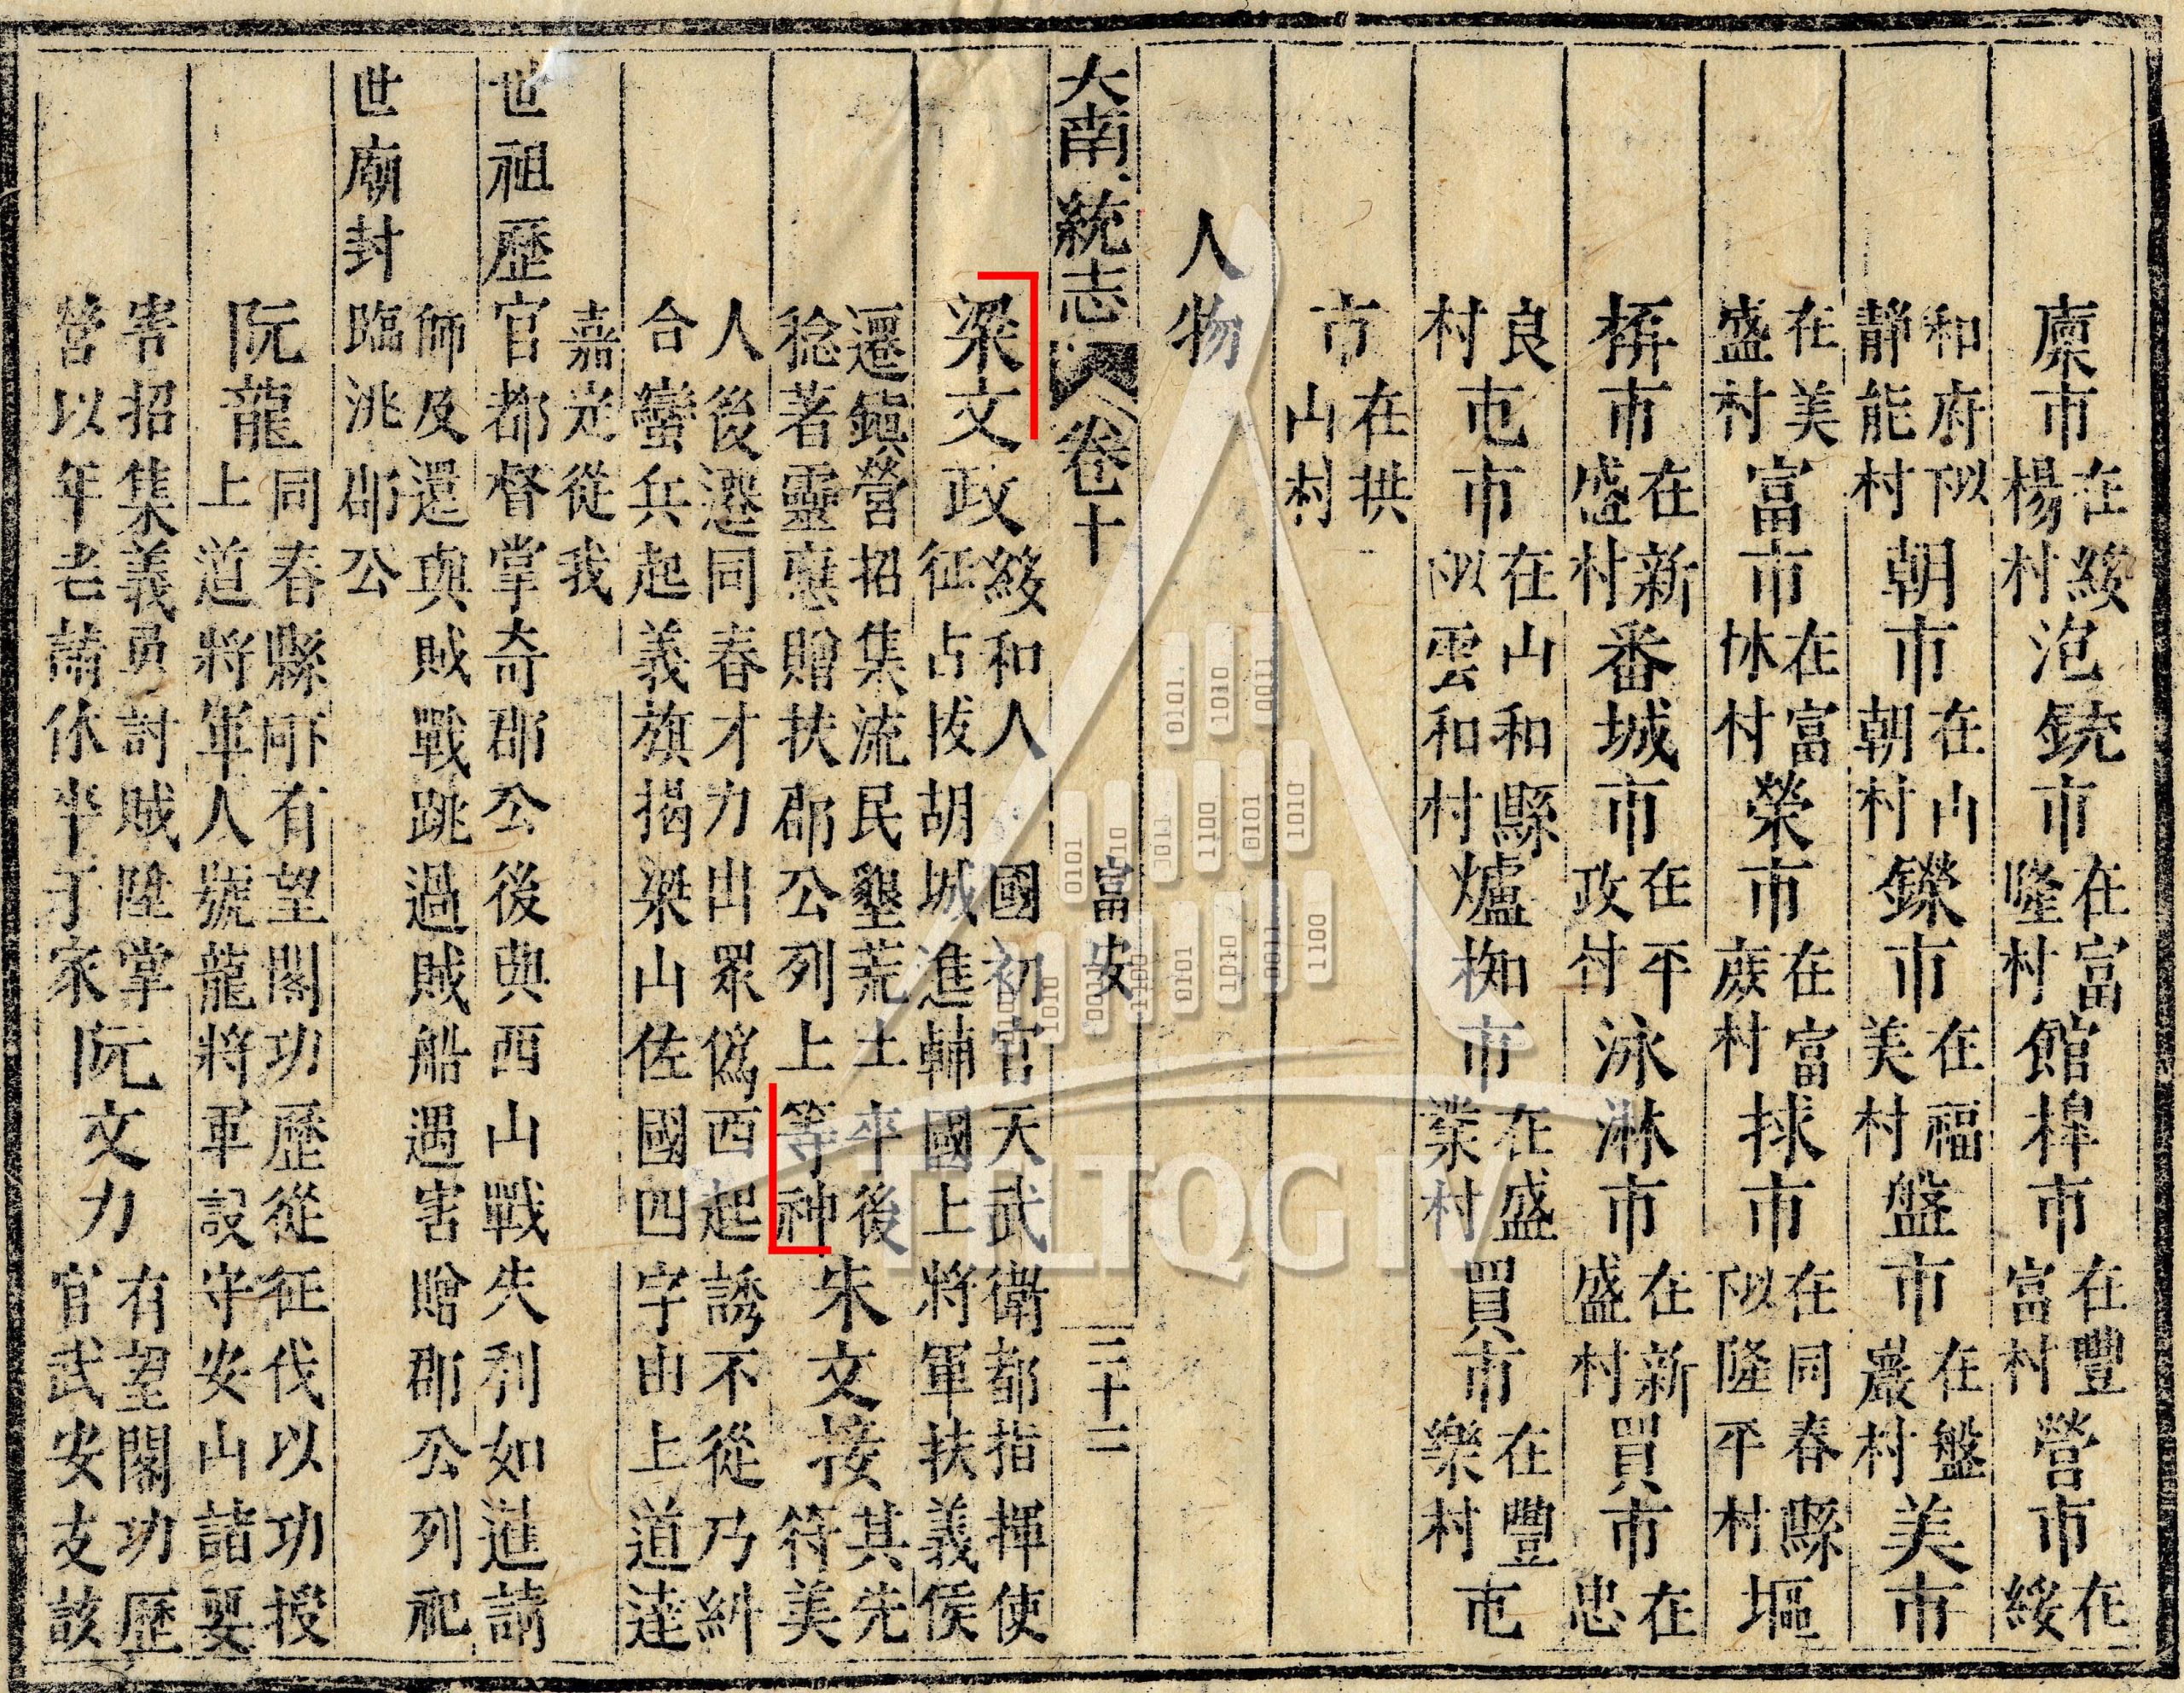 廩市在綏楊村泡銃市在富隆村館桿市在豐富村營市在綏
和府似靜能村朝市在山朝村鑠市在福美村盤市在盤巖村美市
在美盛村富市在富村榮市在富村捄市在同春縣隆平村塸
栟市在新盛村番城市在平政村泳淋市在新盛村買市在忠
良村屯市在山和縣似雲和村爐椥市在盛業村買市在豐樂村屯
市在拱山村
人物
大南一統志 卷十 富安 三十二
梁文政綏和人國初官天武衛都指揮使征占拔胡城進輔國上將軍扶義侯
還鎮營招集流民墾荒土卒後稔著靈應贈扶郡公列上等神朱文接其先符美
人後遷同春才力出眾偽西起誘不從乃糾合蠻兵起義旗揭梁山佐國四字由上道達
嘉定從我
世祖歷官都督掌奇郡公後與西山戰失利如暹請
師及還與賊戰跳過賊船遇害贈郡公列祀
世廟封臨洮郡公
阮龍同春縣有望閣功歷從征伐以功授上道將軍人號龍將軍設守安山諸要
害招集義勇討賊陞掌營以年老請休卒于家阮文力有望閣功歷官武安支該
TTLTQGIV